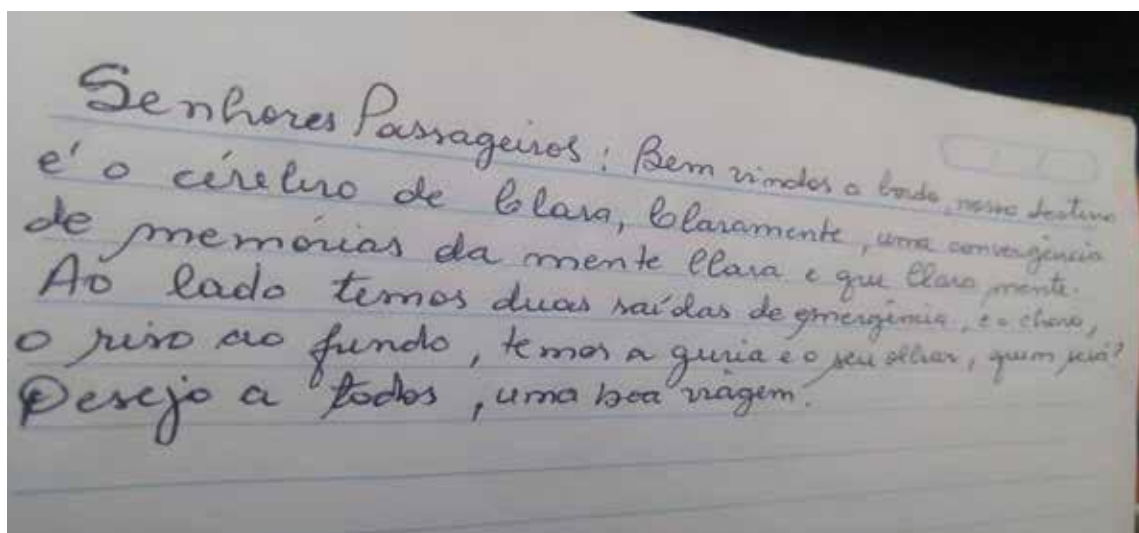 Senhores Passageiros: Bem vindos a bordo, nosso destino
é o cérebro de Clara, Claramente, uma convergência
de memórias da mente Clara e que Clara mente.
Ao lado temos duas saídas de emergência, e o choro,
o riso ao fundo, temos a guria e o seu olhar, quem será?
Desejo a todos, uma boa viagem.